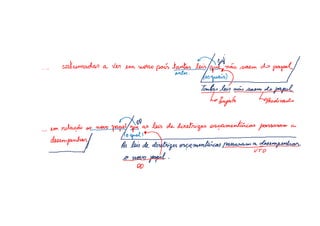 ... acostumados a ver em nosso país tantas leis que não saem do papel
suj
antec.
(as quais)
Tantas leis não saem do papel
Sujeito
Predicado
... em relação ao novo papel que as leis de diretrizes orçamentárias passaram a
OD
(o qual)
desempenhar
As leis de diretrizes orçamentárias passaram a desempenhar
VTD
o novo papel.
OD